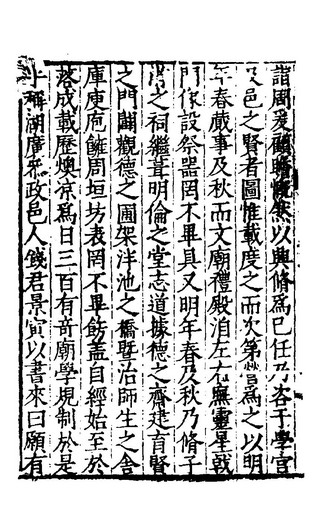 諮周爰顧瞻慨然以興脩為己任乃咨于學官
及邑之賢者圖惟載度之而次第營為之以明
年春蕆事及秋而文廟禮殿洎左右廡靈星戟
門像設祭器罔不畢具又明年春及秋乃脩子
之祠繼葺明倫之堂志道據德之齋建育賢
之門闢觀德之圃架泮池之橋暨治師生之舍
庫庾庖雝周垣坊表罔不畢飭盖自經始至於
落成載歷燠凉為日三百有奇廟學規制於是
乎稱湖廣叅政邑人錢君景寅以書來曰願有